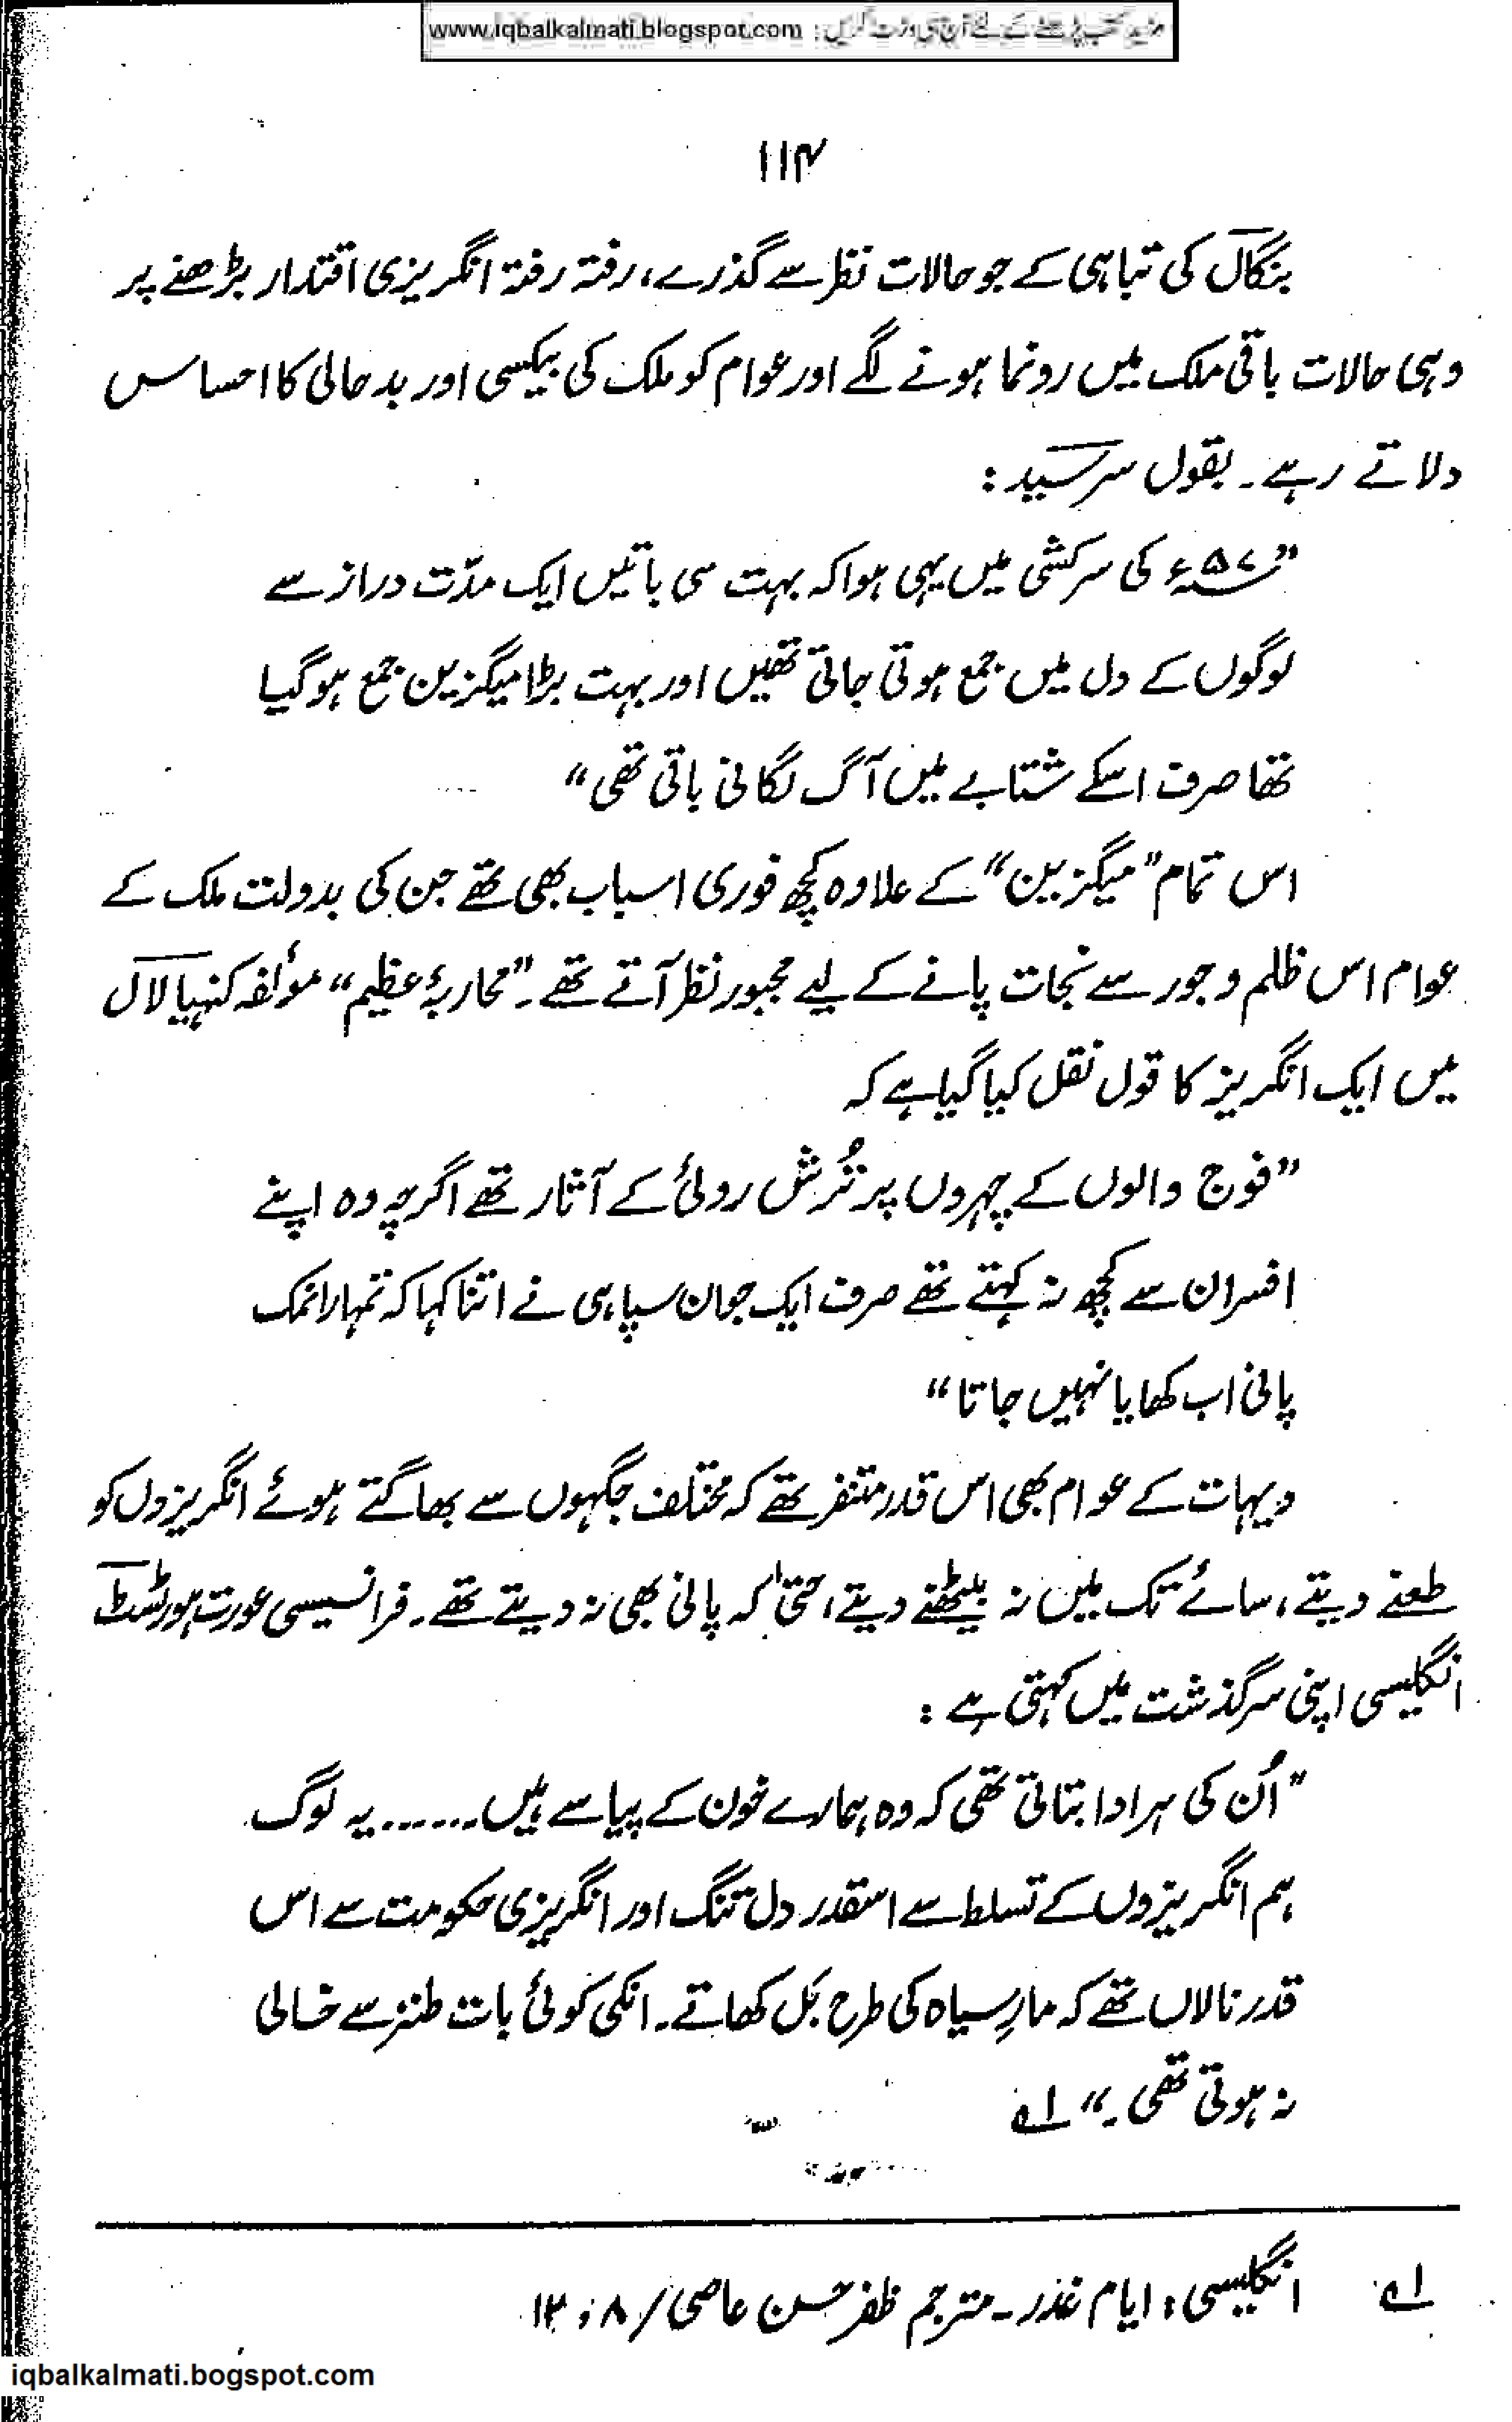 مزید کتب پڑھنے کے لئے آج ہی وزٹ کریں : www.iqbalkalmati.blogspot.com
۱۱۴
بنگال کی تباہی کے جو حالات نظر سے گذرے، رفتہ رفتہ انگریزی اقتدار بڑھنے پر
وہی حالات باقی ملک میں رونما ہونے لگے اور عوام کو ملک کی بیکسی اور بدحالی کا احساس
دلاتے رہے۔ بقول سرسید :
”۵۷ء کی سرکشی میں یہی ہوا کہ بہت سی باتیں ایک مدّت دراز سے
لوگوں کے دل میں جمع ہوتی جاتی تھیں اور بہت بڑا میگزین جمع ہوگیا
تھا صرف اسکے شتابے میں آگ لگانی باقی تھی“
اس تمام ”میگزین“ کے علاوہ کچھ فوری اسباب بھی تھے جن کی بدولت ملک کے
عوام اس ظلم وجور سے نجات پانے کے لیے مجبور نظر آتے تھے۔ ”محاربۂ عظیم“ مؤلفہ کنہیا لال
میں ایک انگریز کا قول نقل کیا گیا ہے کہ
”فوج والوں کے چہروں پر تُرش روئی کے آثار تھے اگرچہ وہ اپنے
افسران سے کچھ نہ کہتے تھے صرف ایک جوان سپاہی نے اتنا کہا کہ تمہارا نمک
پانی اب کھایا نہیں جاتا“
دیہات کے عوام بھی اس قدر متنفر تھے کہ مختلف جگہوں سے بھاگتے ہوئے انگریزوں کو
طعنے دیتے، سائے تک میں نہ بیٹھنے دیتے، حتیٰ کہ پانی بھی نہ دیتے تھے۔ فرانسیسی عورت ہورٹسٹ
انگلیسی اپنی سرگذشت میں کہتی ہے :
”اُن کی ہر ادا بتاتی تھی کہ وہ ہمارے خون کے پیاسے ہیں....... یہ لوگ
ہم انگریزوں کے تسلط سے اسقدر دل تنگ اور انگریزی حکومت سے اس
قدر نالاں تھے کہ مارِ سیاہ کی طرح بَل کھاتے۔ انکی کوئی بات طنز سے خالی
نہ ہوتی تھی۔“ ۱ھ
۱ھ انگلیسی : ایام غدر۔ مترجم ظفر حسن عاصی / ۸ ، ۱۲
iqbalkalmati.bogspot.com